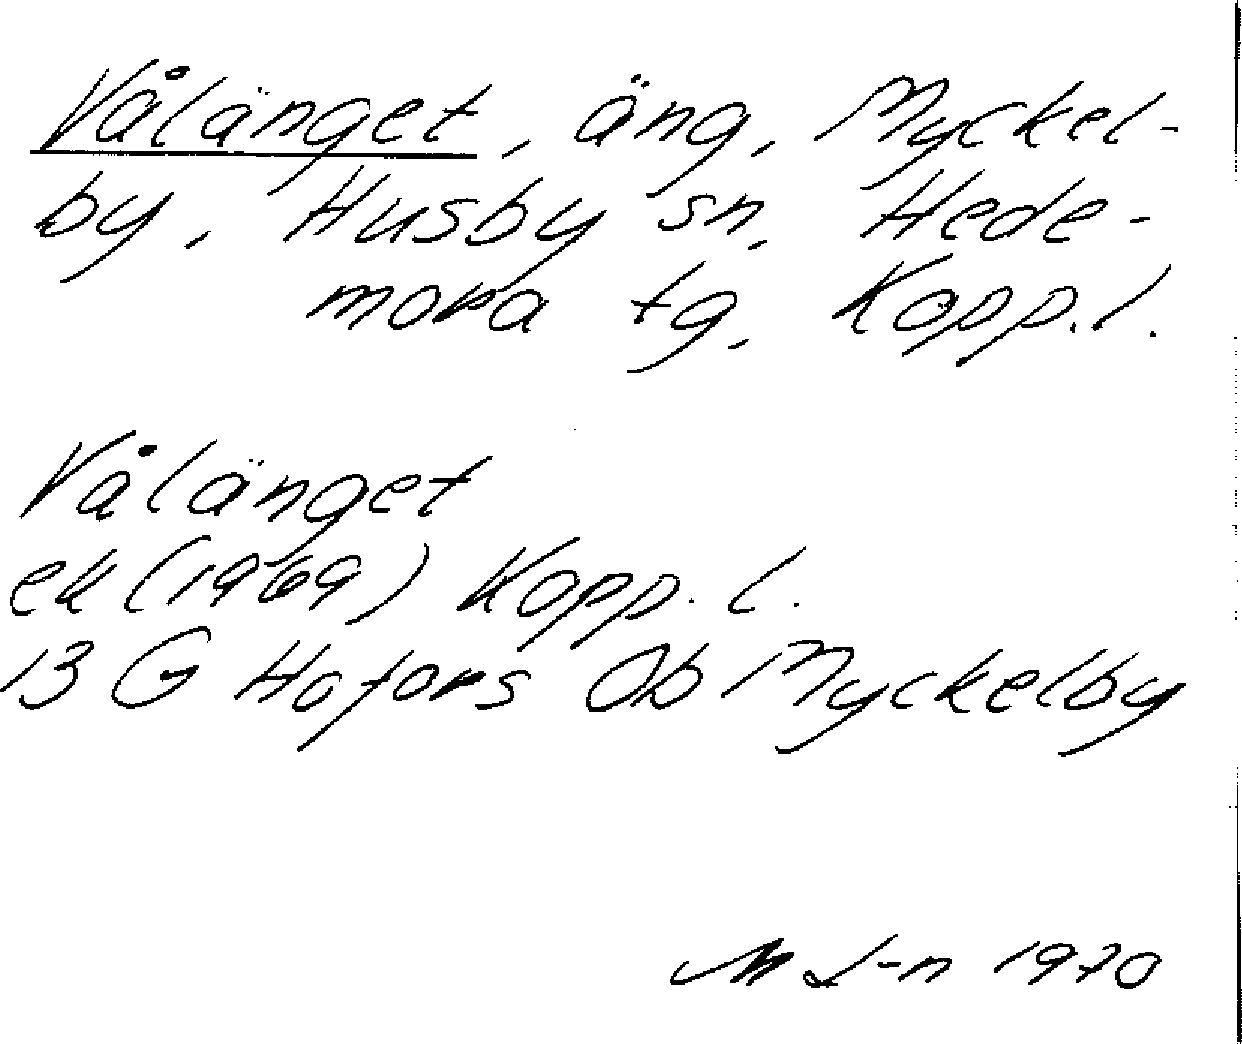 Vålänget, äng, Myckel-
by, Husby sn, Hede-
mora tg, Kopp.l.
Vålänget
ek (1969) Kopp. l.
13 G Hofors Ob Myckelby
M L-n 1970